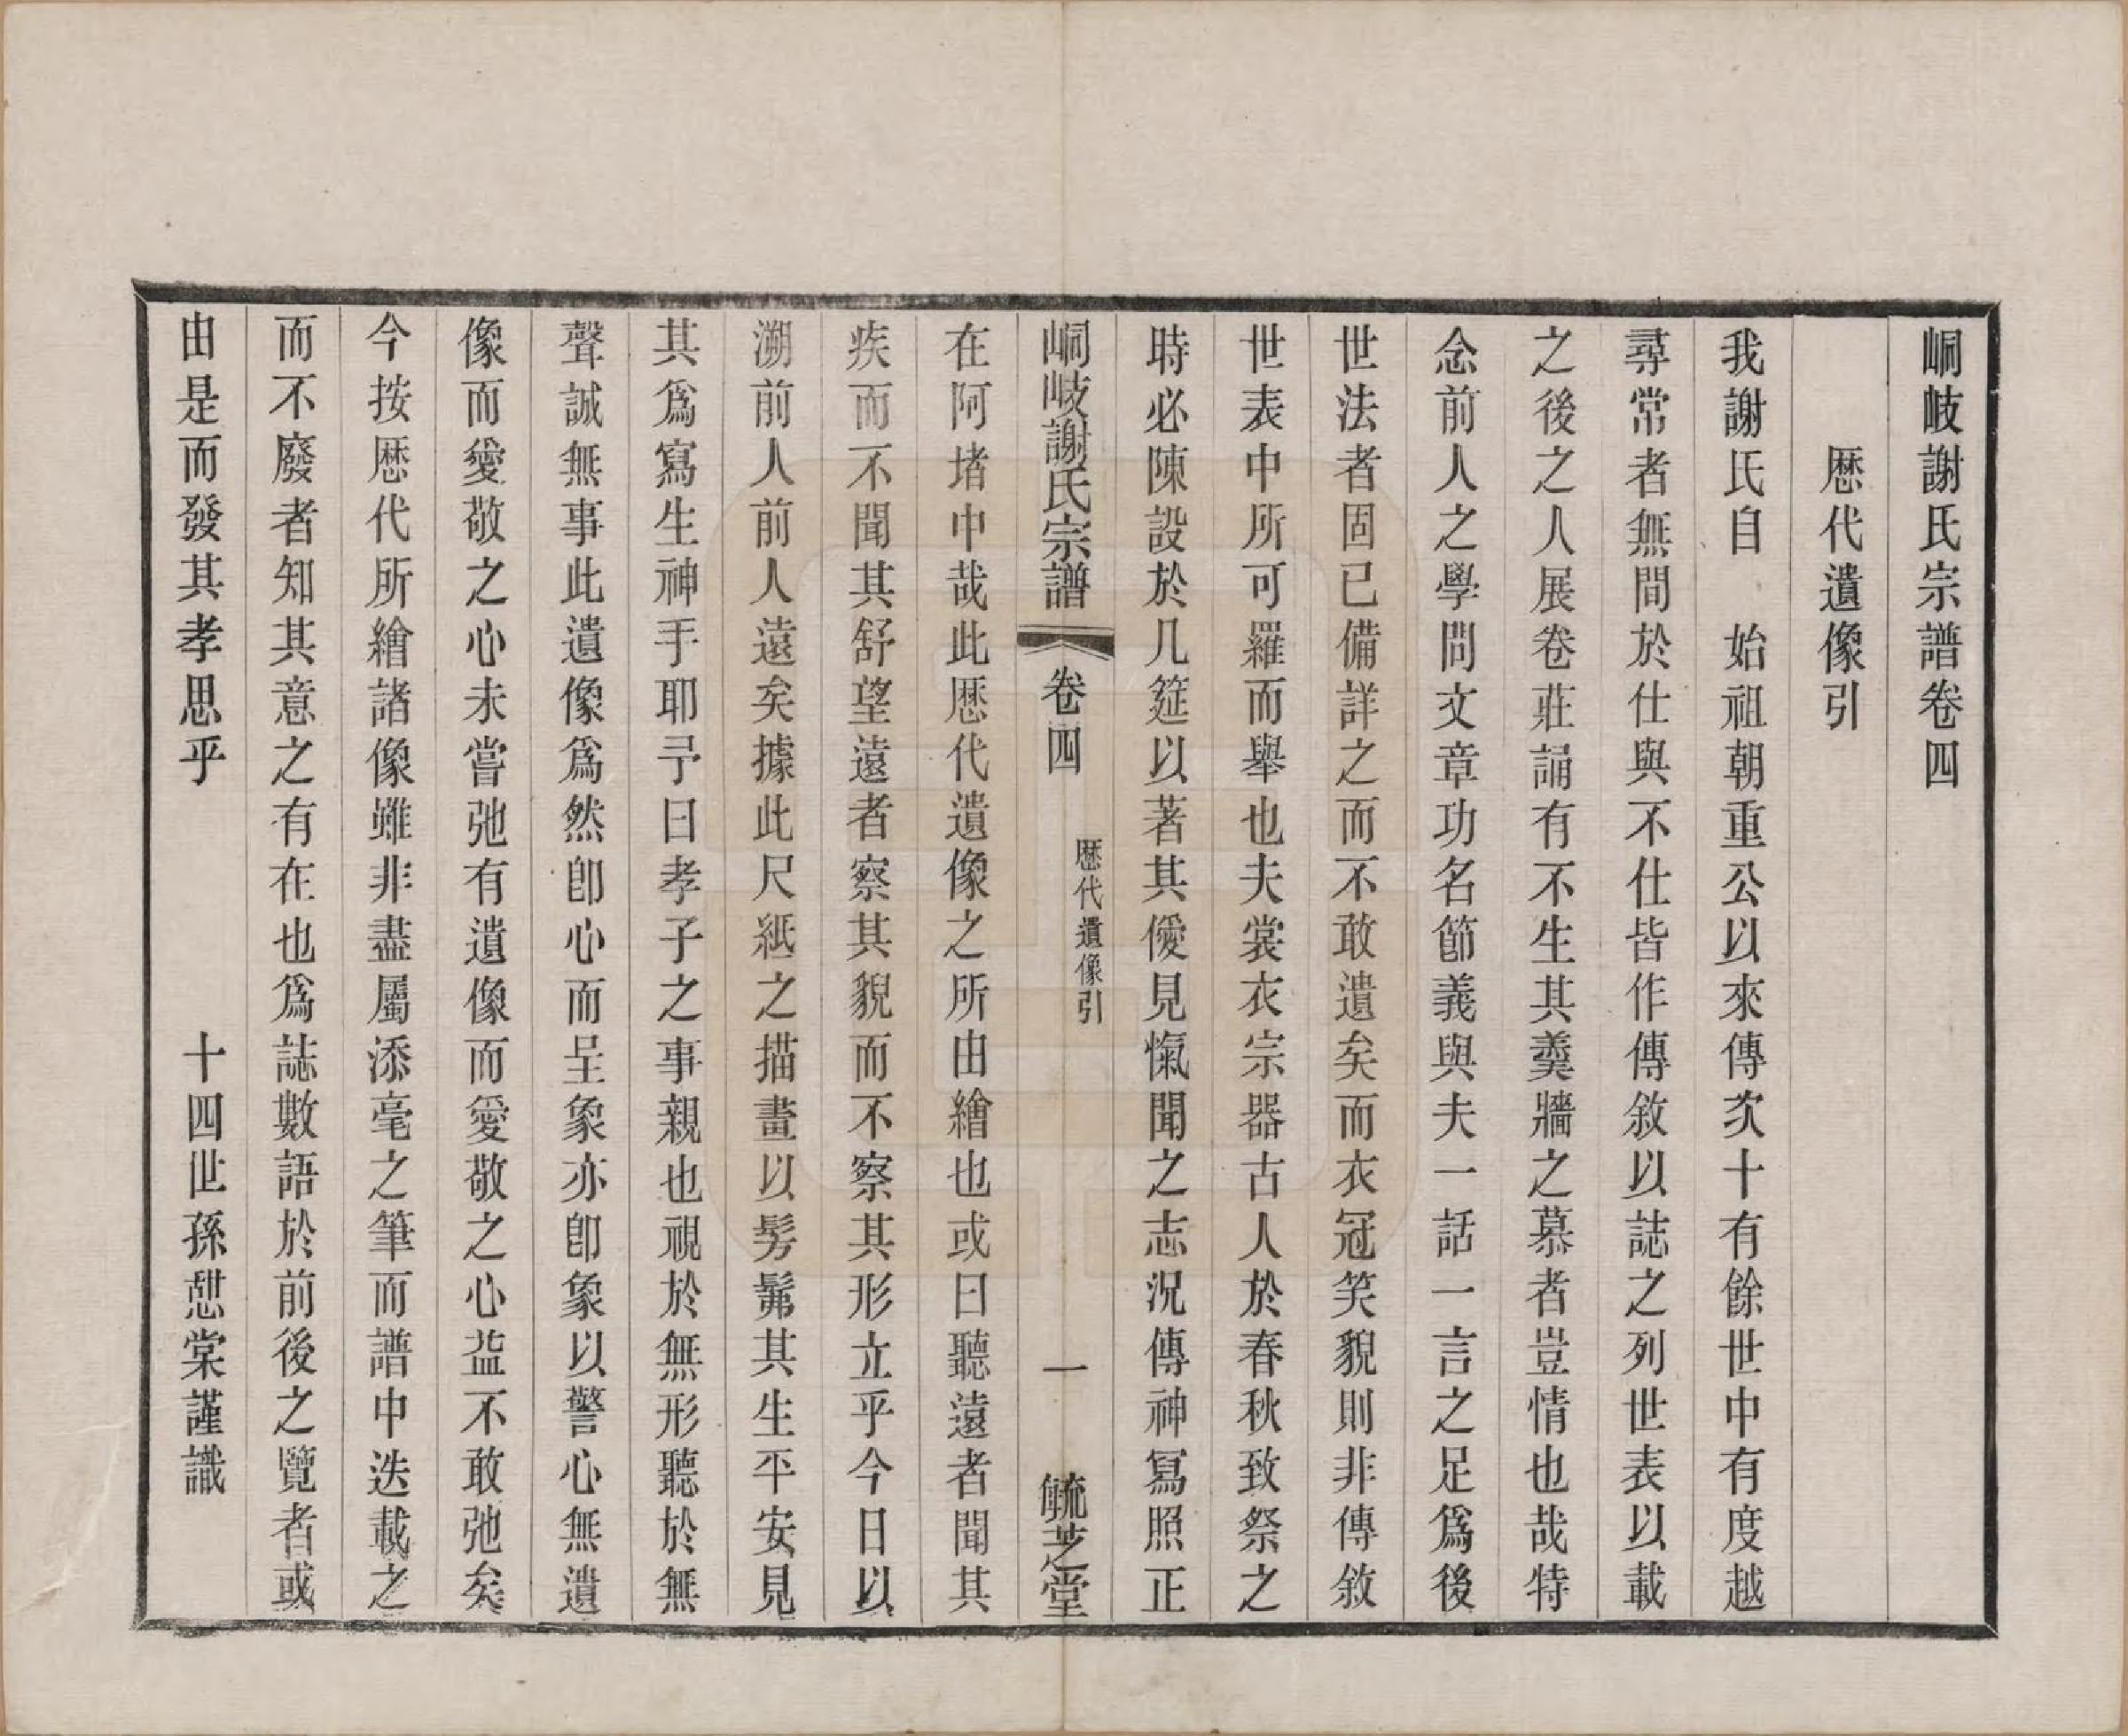 峒岐謝氏宗譜卷四
歷代遺像引
我謝氏自　始祖朝重公以來傳次十有餘世中有度越
尋常者無間於仕與不仕皆作傳敘以誌之列世表以載
之後之人展卷莊誦有不生其羹牆之慕者豈情也哉特
念前人之學問文章功名節義與夫一話一言之足爲後
世法者固已備詳之而不敢遺矣而衣冠笑貌則非傳敘
世表中所可羅而舉也夫裳衣宗器古人於春秋致祭之
時必陳設於几筵以著其僾見愾聞之志況傳神寫照正
峒岐謝氏宗譜　卷四　歷代遺像引　一　毓芝堂
在阿堵中哉此歷代遺像之所由繪也或曰聽遠者聞其
疾而不聞其舒望遠者察其貌而不察其形立乎今日以
溯前人前人遠矣據此尺紙之描畫以髣髴其生平安見
其爲寫生神手耶予曰孝子之事親也視於無形聽於無
聲誠無事此遺像爲然卽心而呈象亦卽象以警心無遺
像而愛敬之心未嘗弛有遺像而愛敬之心益不敢弛矣
今按歷代所繪諸像雖非盡屬添毫之筆而譜中迭載之
而不廢者知其意之有在也爲誌數語於前後之覽者或
由是而發其孝思乎　　　十四世孫憇棠謹識